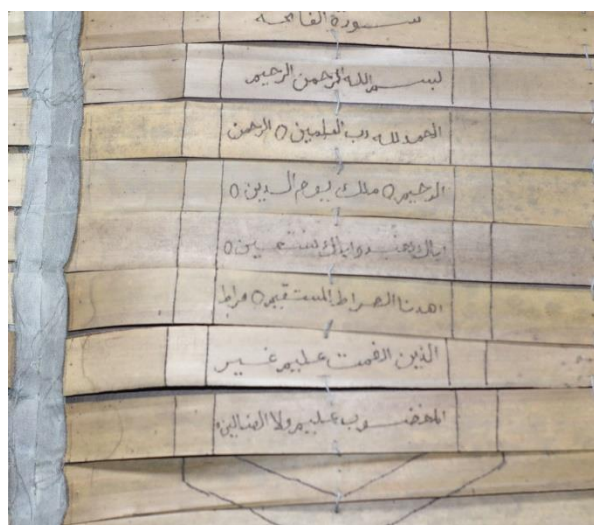 سورة الفاتحة
بسم الله الرحمن الرحيم
الحمد لله رب العلمين ○ الرحمن
الرحيم ○ ملك يوم الدين ○
اياك نعبد واياك نستعين ○
اهدنا الصراط المستقيم ○ صراط
الذين انعمت عليهم غير
المغضوب عليهم ولا الضالين ○